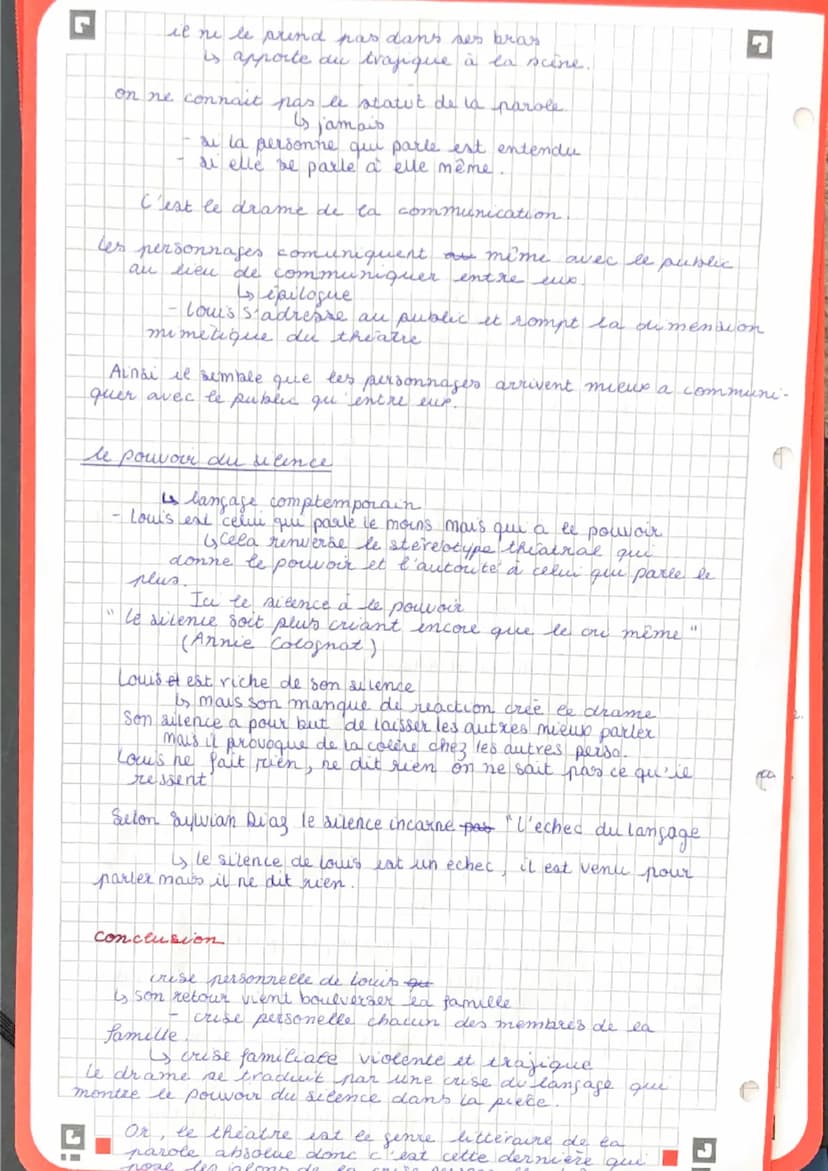 il ne le prend pas dans ses bras
↳ apporte du tragique à la scène.
on ne connait pas le statut de la parole
↳ jamais
- si la personne qui parle est entendu
- si elle se parle à elle même.
C'est le drame de la communication.
Les personnages comuniquent même avec le public
au lieu de communiquer entre eux.
↳ épilogue
- Louis s'adresse au public et rompt la dimension
mimétique du théatre
Ainsi il semble que les personnages arrivent mieux a communi-
quer avec le public qu'entre eux.
le pouvoir du silence
↳ langage comptemporain
- Louis est celui qui parle le moins mais qui a le pouvoir
↳ Cela renverse le stéréotype théatral qui
donne le pouvoir et l'autorité à celui qui parle le
plus.
Ici le silence à le pouvoir
"le silence soit plus criant encore que le cri même"
(Annie Colognat)
Louis est riche de son silence
↳ mais son manque de réaction crée le drame
Son silence a pour but de laisser les autres mieux parler
mais il provoque de la colère chez les autres perso.
Louis ne fait rien, ne dit rien on ne sait pas ce qu'il
ressent
Selon Sylvian Diaz le silence incarne "l'echec du langage
↳ le silence de Louis est un échec, il est venu pour
parler mais il ne dit rien.
Conclusion
crise personnelle de Louis
↳ son retour vient boulverser la famille
- crise personelle chacun des membres de la
famille.
↳ crise familiale violente et tragique
Le drame se traduit par une crise du langage qui
montre le pouvoir du silence dans la pièce.
Or, le théatre est le genre littéraire de la
parole absolue donc c'est cette dernière qui
pose les